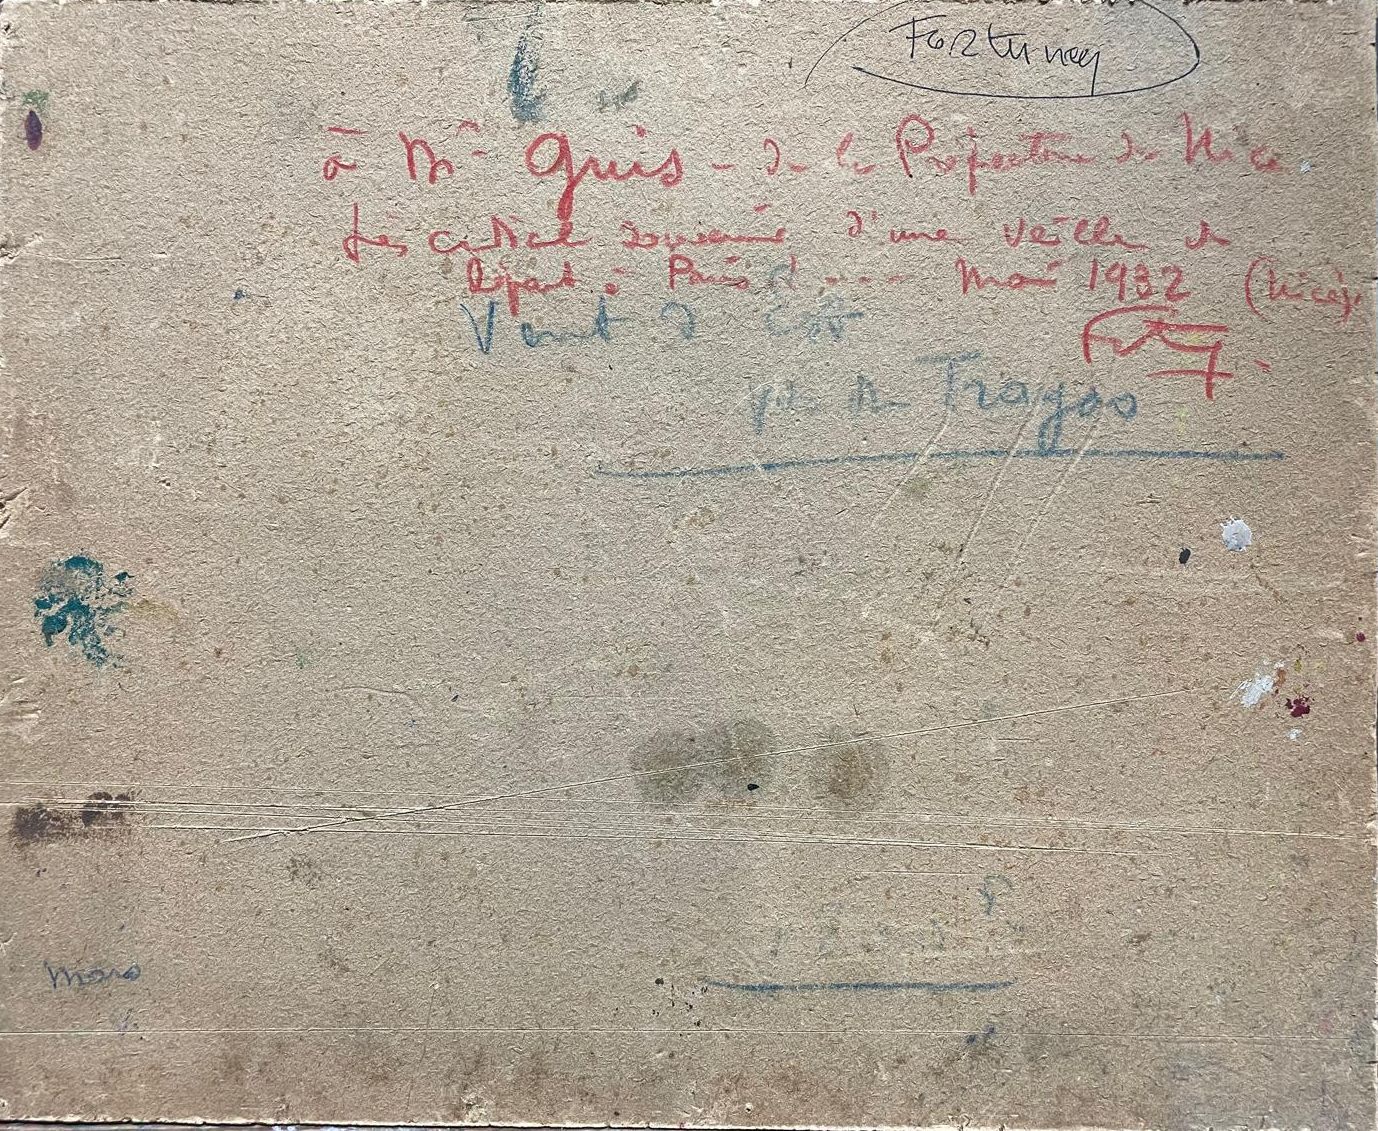 Fortuney
à Mr Guis - de la Préfecture de Nice
très cordial souvenir d'une veille de
Départ à Paris! --- Mai 1932 (Nice).
Vent d'Est
Fortuney.
près du Trayas
Mars